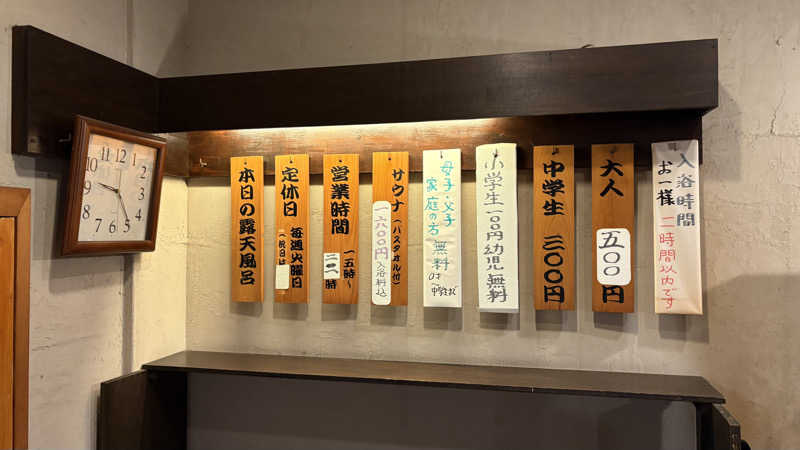 入浴時間
お一様
二時間以内です
大人
五〇〇円
中学生 三〇〇円
小学生 一〇〇円 幼児 無料
母子・父子
家庭の方 無料
サウナ(バスタオル付)
入浴料込
営業時間
一五時〜
時
定休日
毎週火曜日
本日の露天風呂
10 11 12 1 2 3 4 5 6 7 8 9